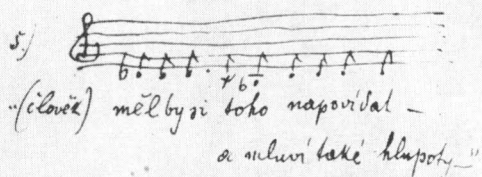 5.)
"(člověk) měl by si toho napovídal –
a mluví také hlupoty –"